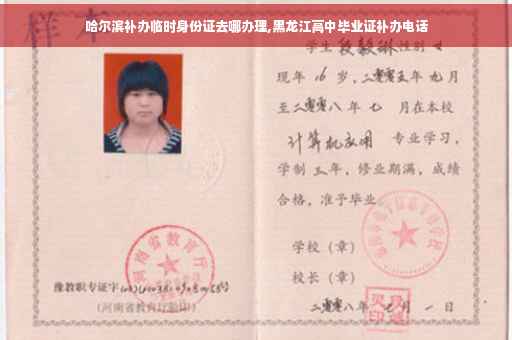 哈尔滨补办临时身份证去哪办理,黑龙江高中毕业证补办电话
样本
学生 段毅琳 性别 女
现年 16 岁，二零零五年 九月
至二零零八年 七 月在本校
计算机应用 专业学习，
学制 三年，修业期满，成绩
合格，准予毕业。
学校（章）
校长（章）
二零零八年 七月 一日
河南省教育厅
豫教职专证字
(河南省教育厅验印)